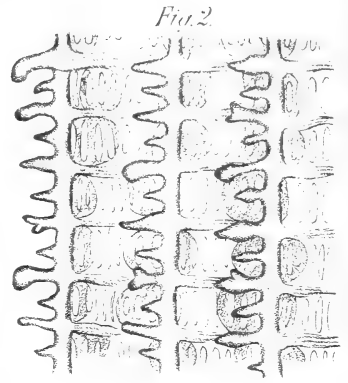 Fig. 2.